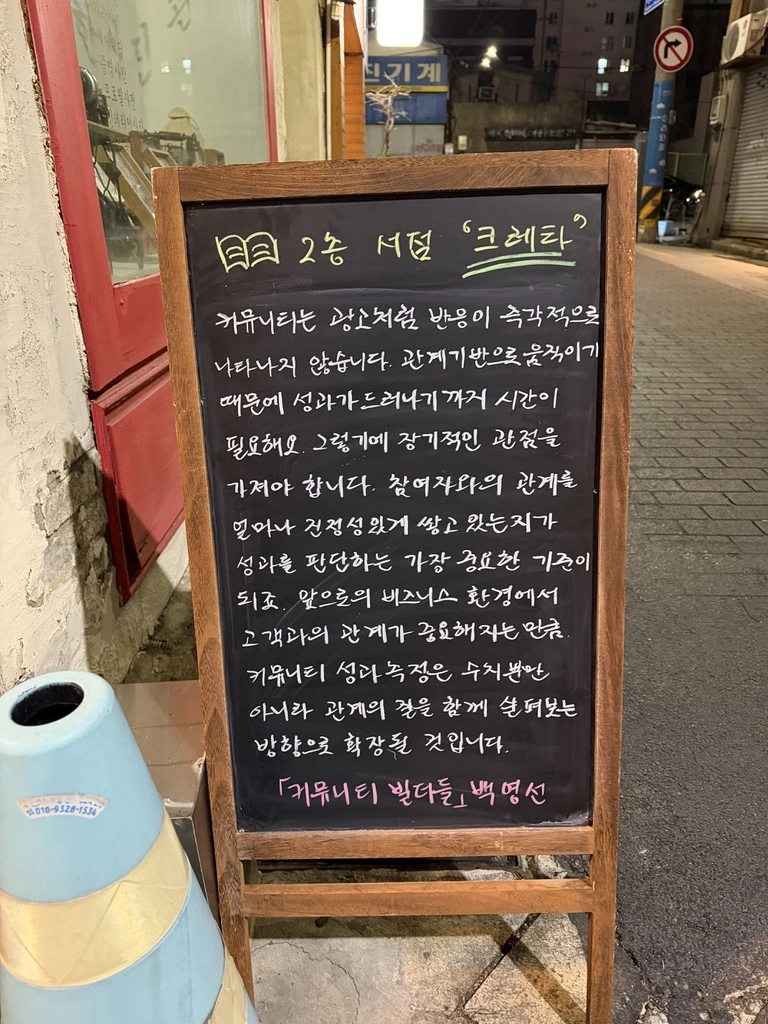 진기계
2층 서점 '크레타'
커뮤니티는 광고처럼 반응이 즉각적으로
나타나지 않습니다. 관계기반으로 움직이기
때문에 성과가 드러나기까지 시간이
필요해요. 그렇기에 장기적인 관점을
가져야 합니다. 참여자와의 관계를
얼마나 진정성있게 쌓고 있는지가
성과를 판단하는 가장 중요한 기준이
되죠. 앞으로의 비즈니스 환경에서
고객과의 관계가 중요해지는 만큼.
커뮤니티 성과측정은 수치뿐만
아니라 관계의 질을 함께 살펴보는
방향으로 확장될 것입니다.
「커뮤니티 빌더들」 백영선
010-9328-1534